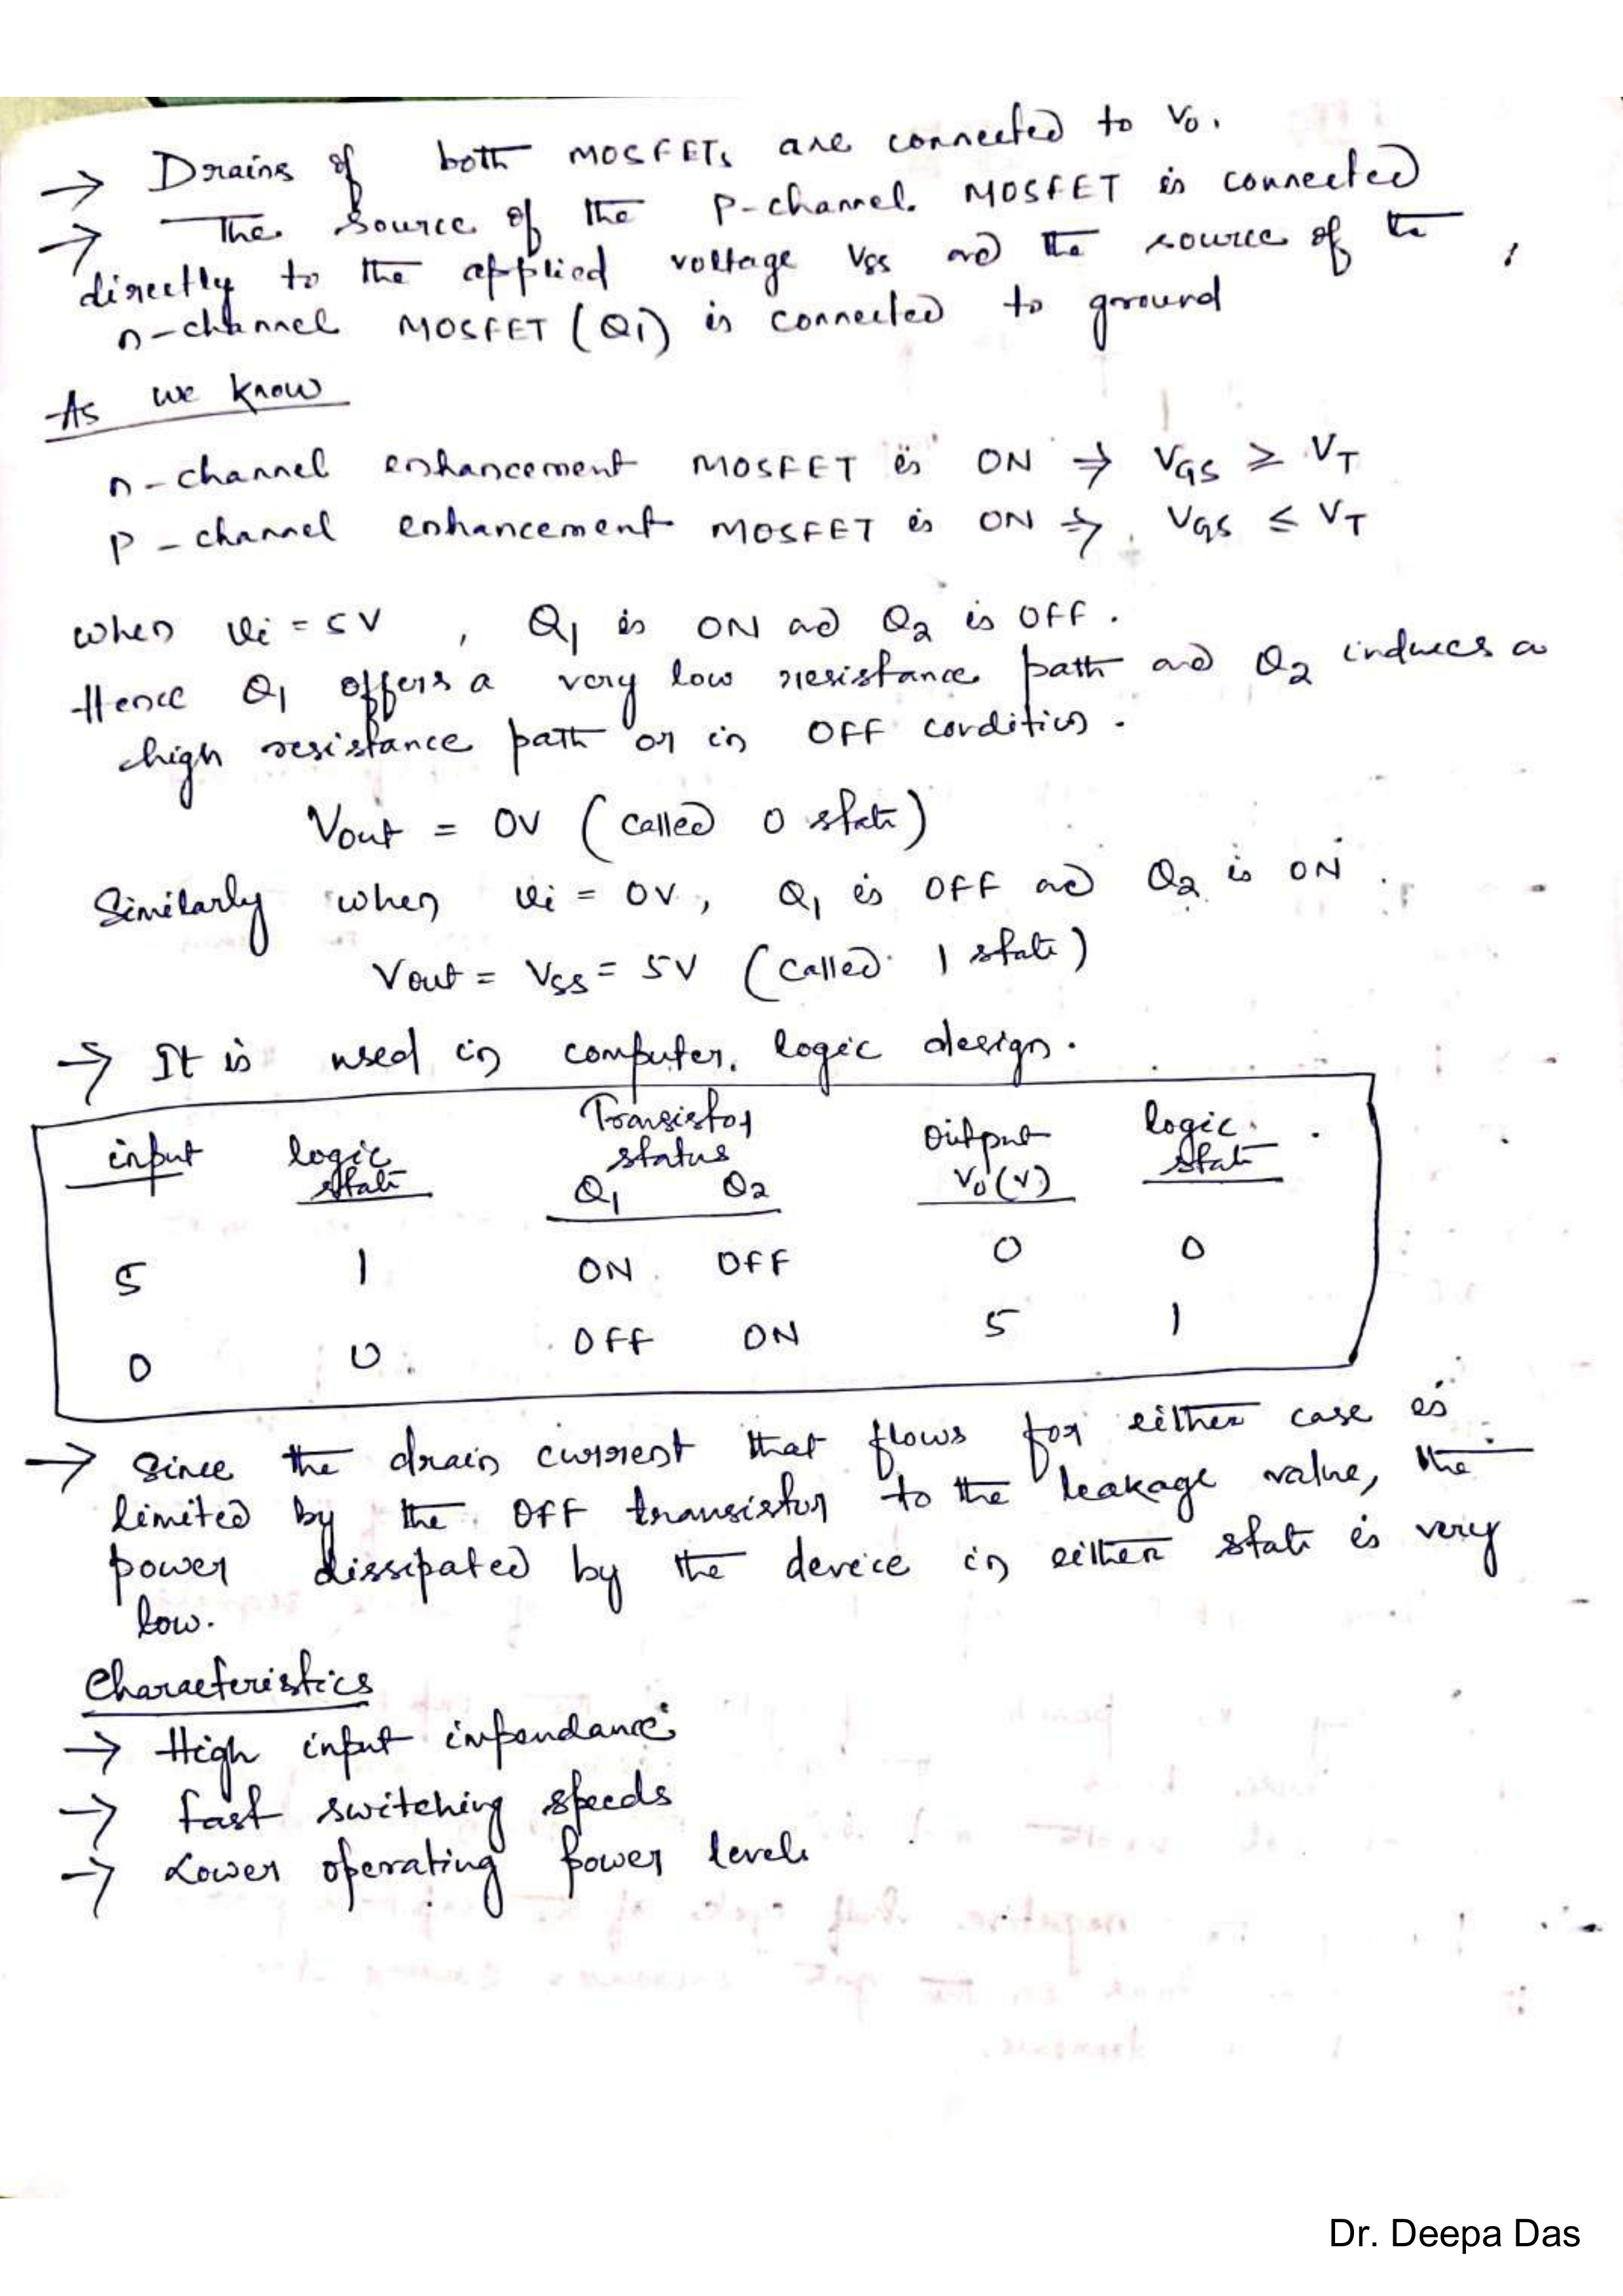 → Drains of both MOSFETs are connected to V0.
→ The source of the P-channel MOSFET is connected
directly to the applied voltage VSS and the source of the
n-channel MOSFET (Q1) is connected to ground
As we know
n-channel enhancement MOSFET is ON ⇒ VGS ≥ VT
P-channel enhancement MOSFET is ON ⇒ VGS ≤ VT
when Vi = 5V , Q1 is ON and Q2 is OFF.
Hence Q1 offers a very low resistance path and Q2 induces a
high resistance path or in OFF condition.
Vout = 0V (called 0 state)
Similarly when Vi = 0V, Q1 is OFF and Q2 is ON.
Vout = VSS = 5V (called 1 state)
→ It is used in computer logic design.
input logic state Transistor status Q1 Q2 Output V0(V) logic state
5 1 ON OFF 0 0
0 0 OFF ON 5 1
→ Since the drain current that flows for either case is
limited by the OFF transistor to the leakage value, the
power dissipated by the device in either state is very
low.
Characteristics
→ High input impendance
→ fast switching speeds
→ Lower operating power level
Dr. Deepa Das